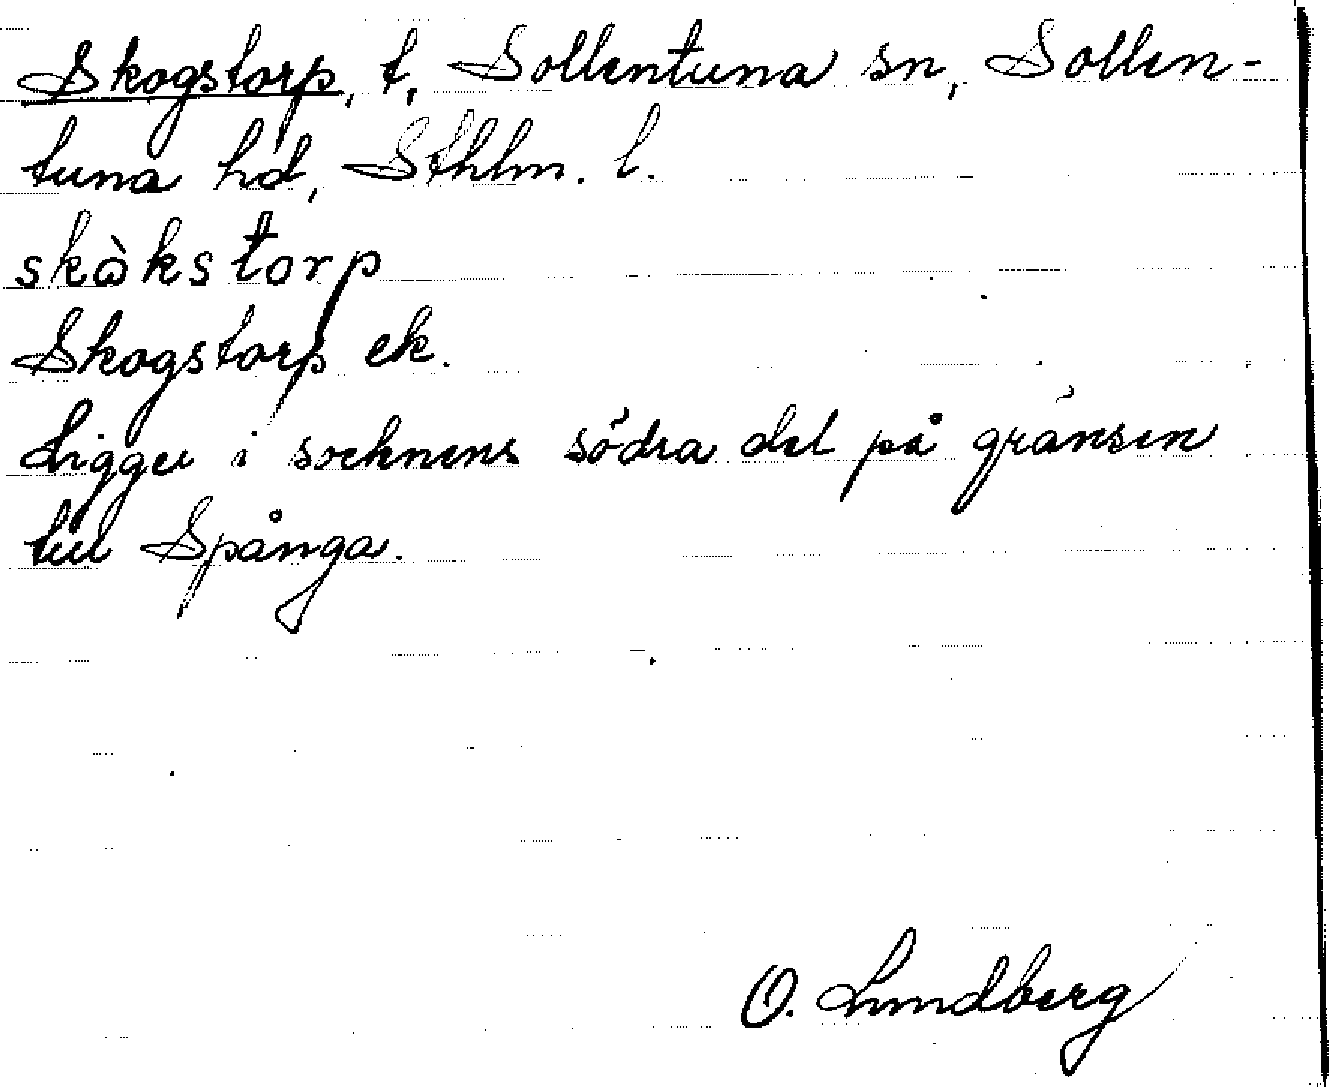 Skogstorp, t, Sollentuna sn, Sollen-
tuna hd, Sthlm. l.
skὼkstorp
Skogstorp ek.
Ligger i socknens södra del på gränsen
till Spånga.
O. Lundberg